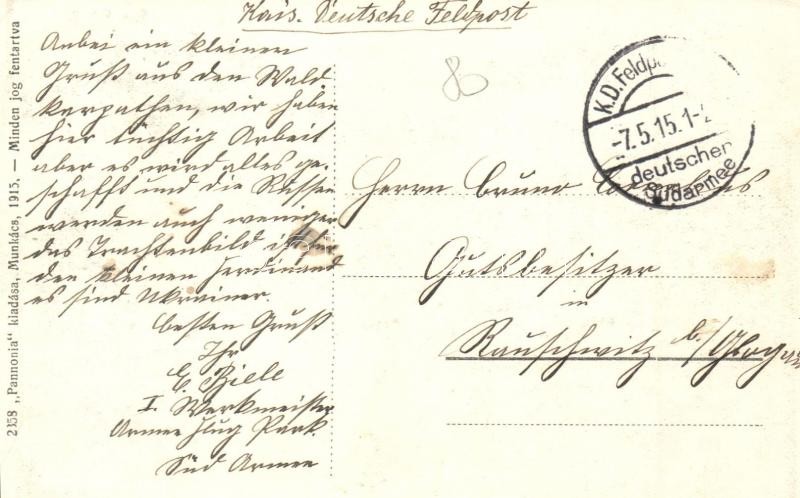 Kais. Deutsche Feldpost
Anbei ein kleinen
Gruß aus den Wald
karpathen, wir haben
hier tüchtig Arbeit
aber es wird alles ge-
schafft und die Russen
werden auch weniger
das Trachtenbild ist für
den kleinen Ferdinand
es sind Ukrainer.
besten Gruß
Ihr
E. Biele
I. Werkmeister
Armee Flug Park.
Süd Armee
K.D. Feldpo
-7.5.15. 1-2
deutschen
Südarmee
Herrn Bruno
Gutsbesitzer
in
Rauschwitz b/Glogau
2358 „Pannonia" kiadása, Munkács, 1915. — Minden jog fentartva